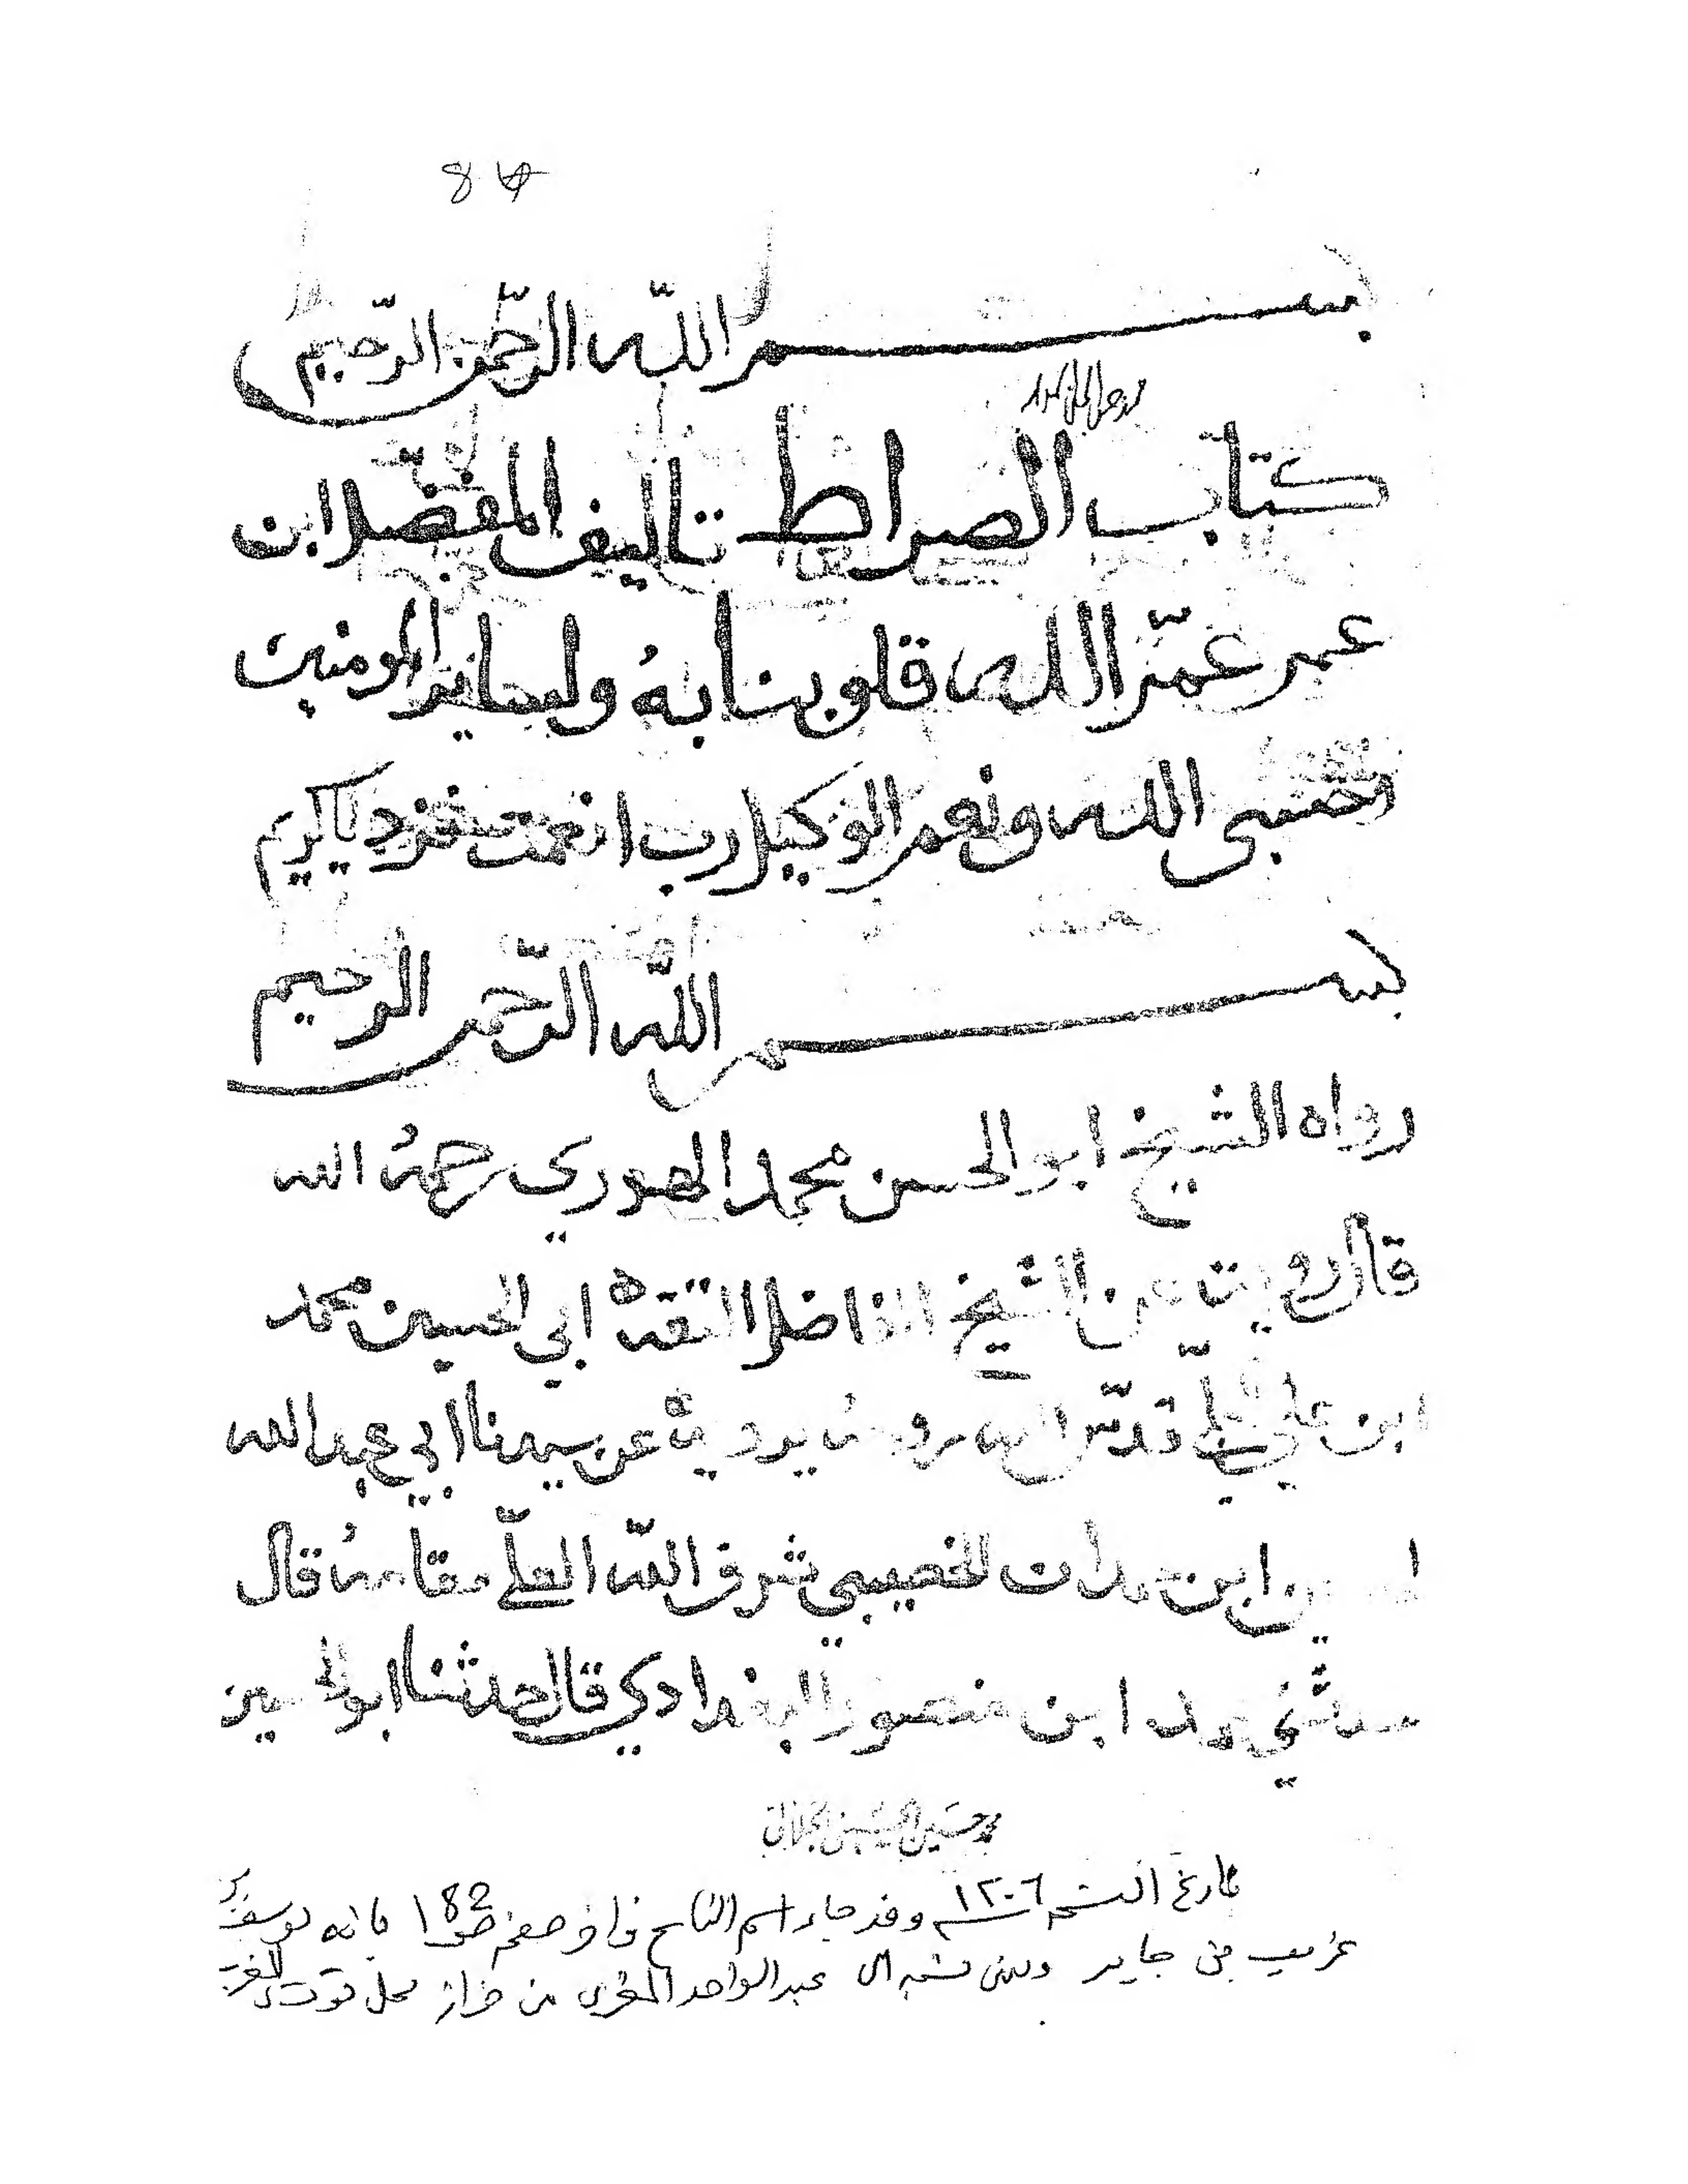 بسم اللّه الرّحمن الرّحيم
كتاب الصراط تاليف المفضّل ابن
عمر عمّر الله قلوبنا بهُ ولساير المومنين
وحسبي الله ونعم الوكيل رب انعمت فزد ياكريم
بسم اللّه الرّحمن الرحيم
رواه الشيخ ابو الحسن محمد الصوري رحمهُ الله
قال رويت عن الشيخ الفاضل الثقه ابي الحسين محمد
ابن علي الجلّي قدّس الله روحهُ يرويه عن سيدنا ابي عبد الله
الحسين ابن حمدان الخصيبي شرف اللّه العليّ مقامهُ قال
حدثني محمد ابن منصور البغدادي قال حدثنا ابو الحسين
محمد حسين الحسيني الجلالي
تاريخ النسخه ١٢٠٦ وقد جاء اسم الناسخ في اخر صفحه ص 182 بانه يوسف
غريب بن جابر عبد الواحد من